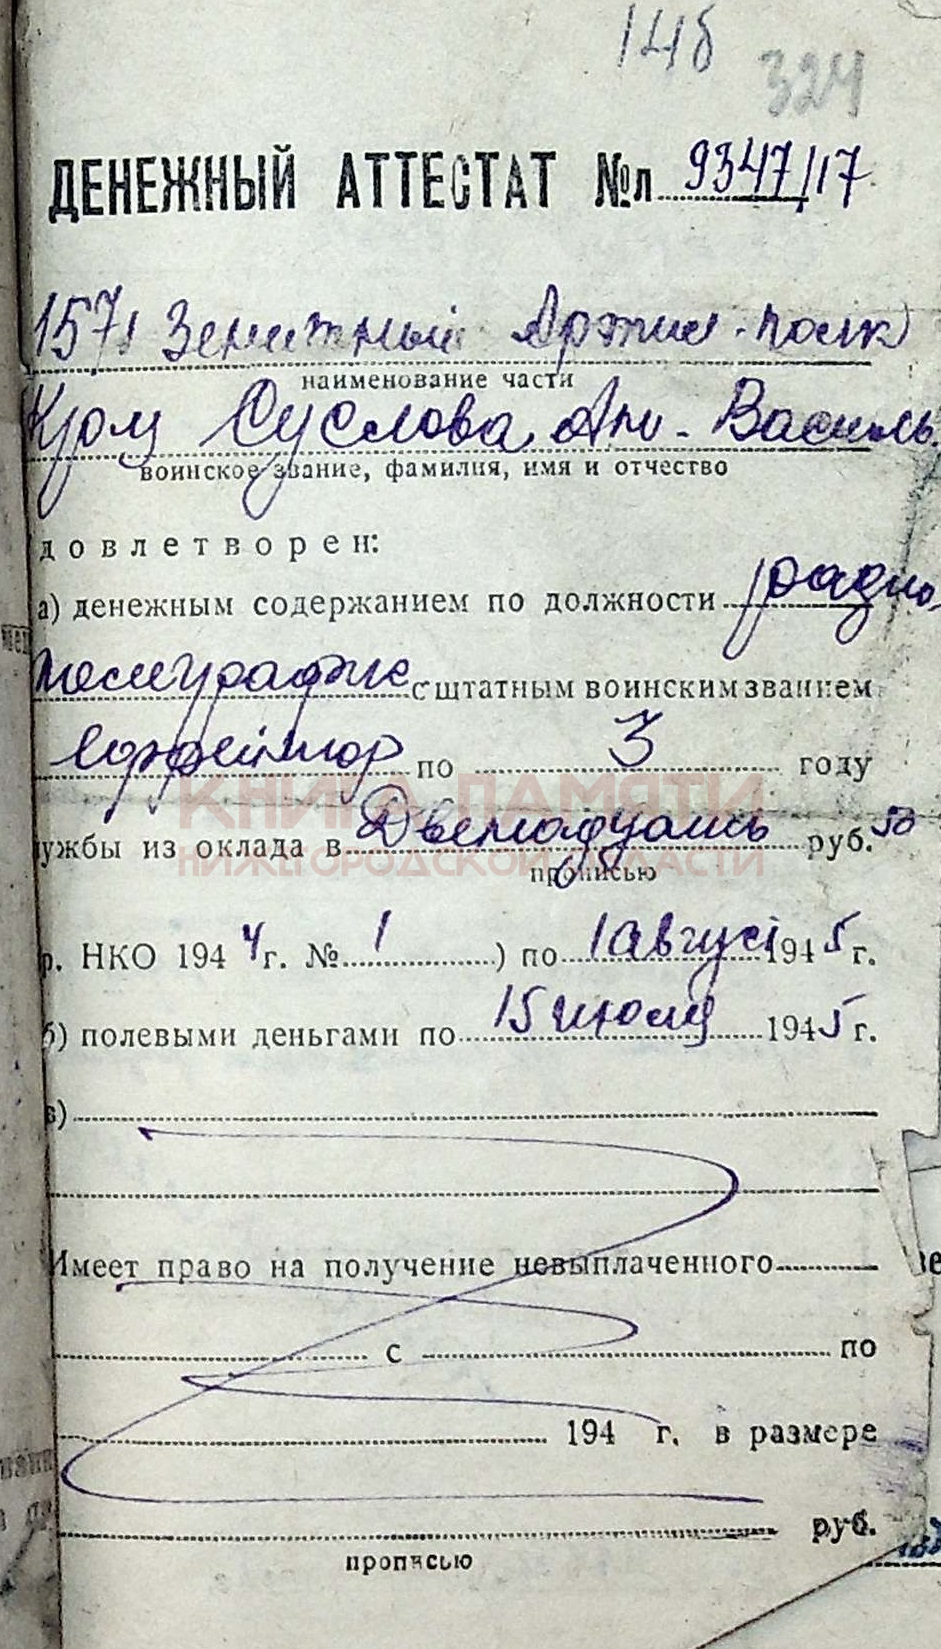 146
324
ДЕНЕЖНЫЙ АТТЕСТАТ №л 9347/17
1571 Зенитный Артил. полк
наименование части
Суслова Ан. Василь.
воинское звание, фамилия, имя и отчество
довлетворен:
а) денежным содержанием по должности радио
телеграфис с штатным воинским званием
Ефрейтор по 3 году
КНИГА ПАМЯТИ
ужбы из оклада в Двенадцать руб. 50
НИЖЕГОРОДСКОЙ ОБЛАСТИ
прописью
р. НКО 1944 г. № 1 ) по 1 Август 1945 г.
б) полевыми деньгами по 15 июля 1945 г.
в)
Имеет право на получение невыплаченного
с по
194 г. в размере
руб.
прописью